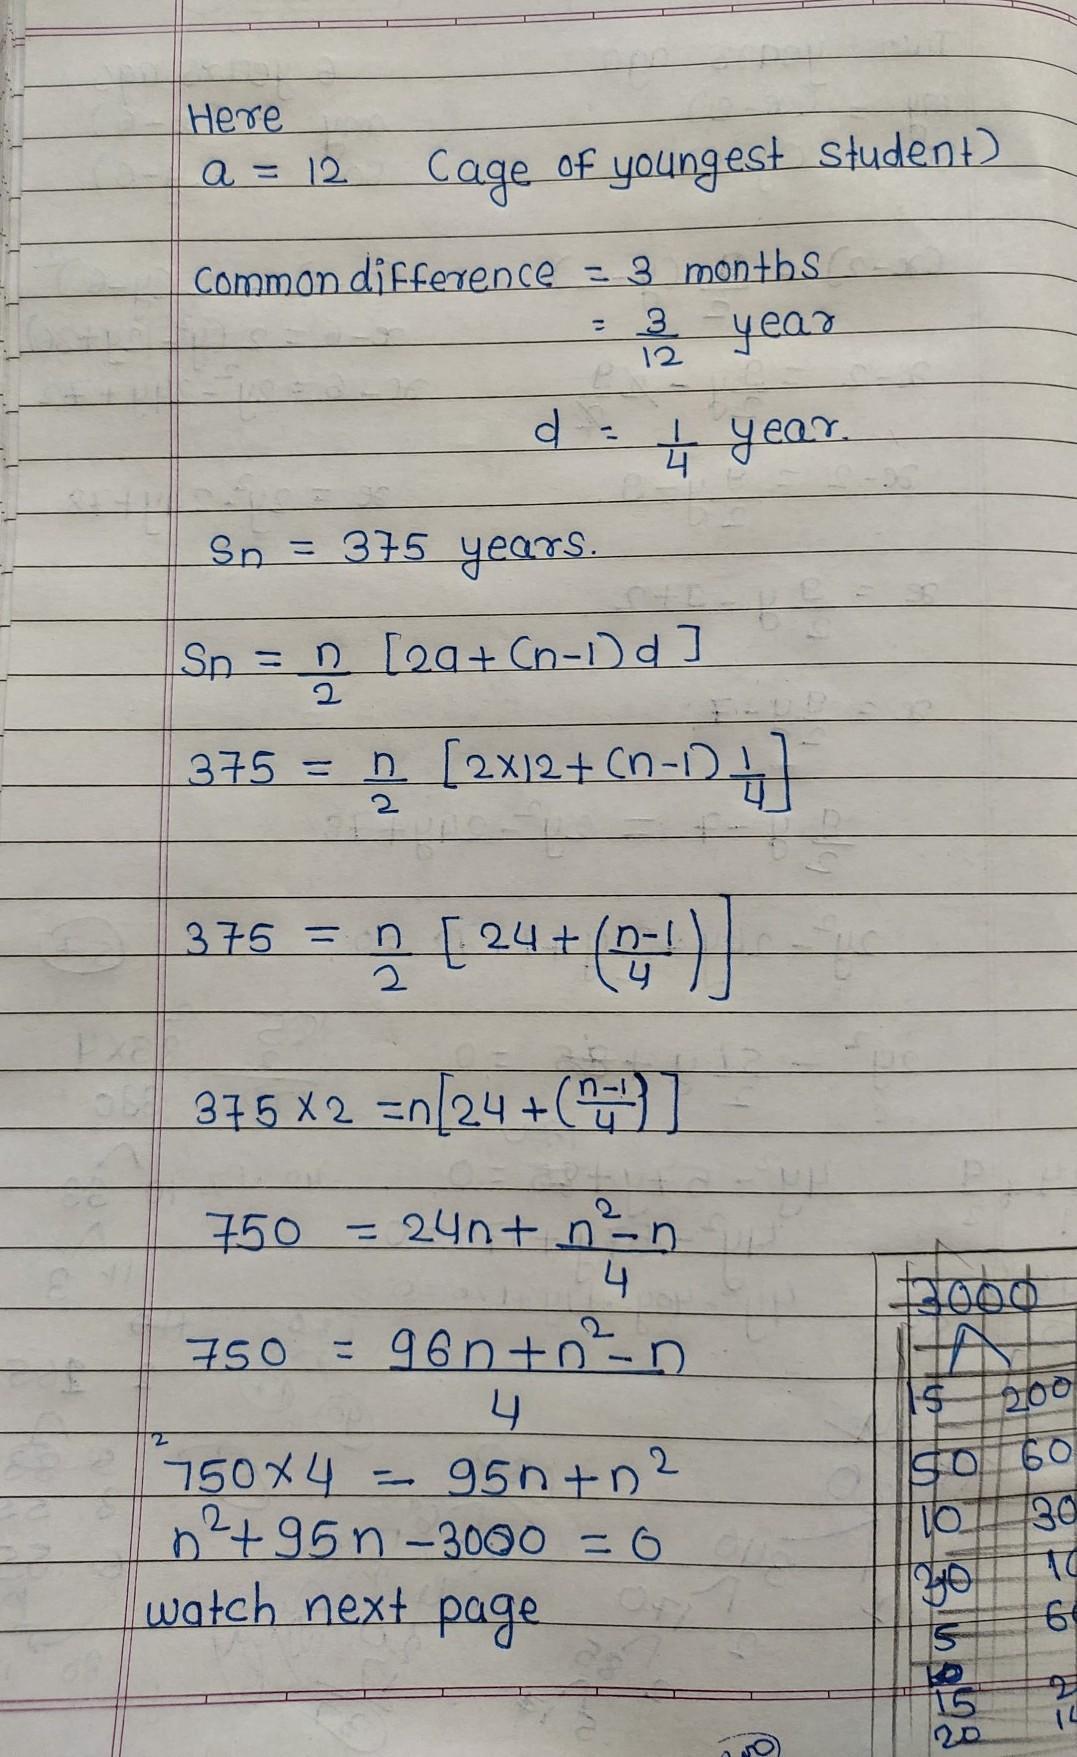 Here
a = 12 (age of youngest student)
Common difference = 3 months
= 3/12 year
d = 1/4 year.
Sn = 375 years.
Sn = n/2 [2a+(n-1)d]
375 = n/2 [2×12+(n-1) 1/4]
375 = n/2 [24+(n-1/4)]
375×2 =n[24+(n-1/4)]
750 = 24n+ n²-n/4
750 = 96n+n²-n/4
750×4 = 95n+n²
n²+95n-3000 = 0
watch next page
3000
15 200
50 60
10 30
5
15
20